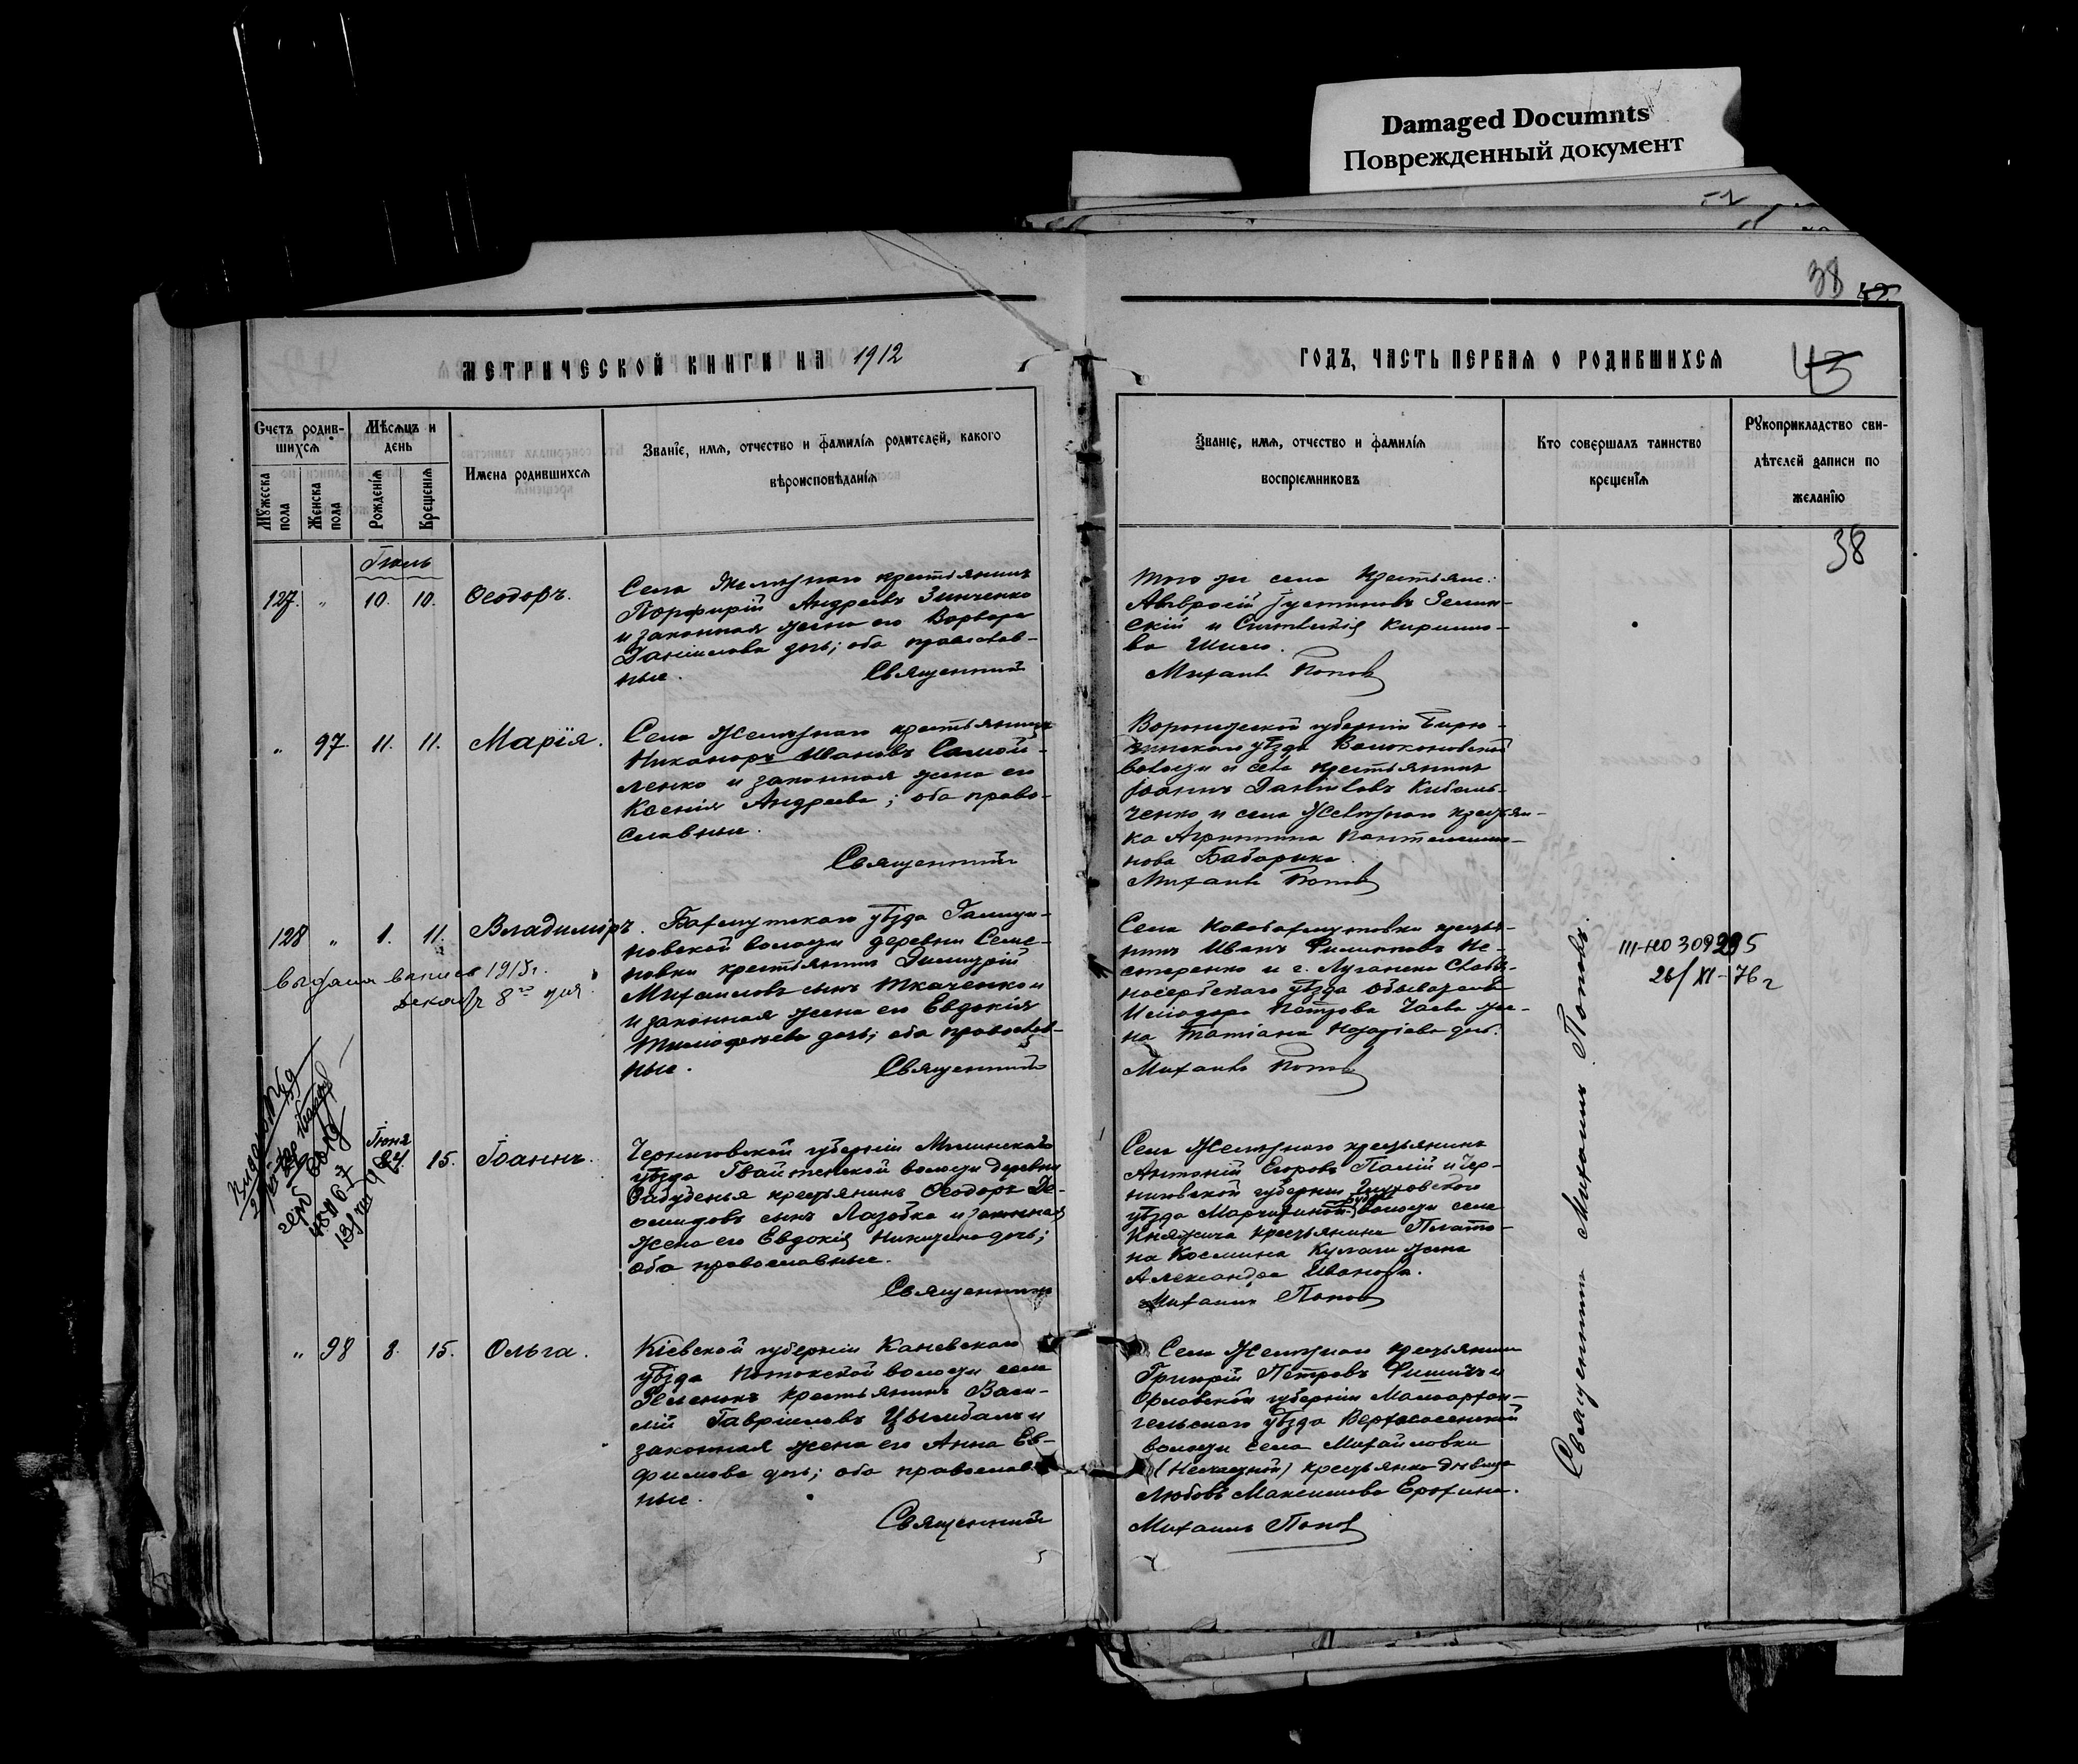 Damaged Documnts
Поврежденный документ
38
42
МЕТРИЧЕСКОЙ КНИГИ НА 1912
ГОДЪ, ЧАСТЬ ПЕРВАЯ О РОДИВШИХСЯ
43
Счетъ родив-
шихся
Мужеска пола
Женска пола
Мѣсяцъ и
день
Рожденія
Крещенія
Имена родившихся
Званіе, имя, отчество и фамилія родителей, какого
вѣроисповѣданія
Званіе, имя, отчество и фамилія
воспріемниковъ
Кто совершалъ таинство
крещенія
Рукоприкладство сви-
дѣтелей записи по
желанію
38
Іюль
127. " 10. 10. Ѳеодоръ.
Села Желѣзнаго крестьянинъ
Порфирій Андреевъ Зинченко
и законная жена его Варвара
Даніилова дочь; оба православ-
ные.
Священникъ
Того же села крестьяне:
Амвросій Іустиновъ Зелин-
скій и Кирилло-
ва Шило.
Михаилъ Поповъ
" 97. 11. 11. Марія.
Села Желѣзнаго крестьянинъ
Никаноръ Ивановъ Самой-
ленко и законная жена его
Ксенія Андреева; оба право-
славные.
Священникъ
Воронежской губерніи Бирю-
чинскаго уѣзда Волоконовской
волости и села крестьянинъ
Іоаннъ Даніиловъ Кибаль-
ченко и села Желѣзнаго крестьян-
ка Агриппина Пантелеимо-
нова Бабарика.
Михаилъ Поповъ
128 " 1. 11. Владиміръ.
выдана выпись 1915 г.
Декабр 8го дня.
Бахмутскаго уѣзда
новской волости деревни Семе-
новки крестьянинъ Димитрій
Михаиловъ сынъ Ткаченко и
и законная жена его Евдокія
Тимофеева дочь; оба православ-
ные.
Священникъ
Села Новобахмутовки крестья-
нинъ Иванъ Филипповъ Не-
стеренко и г. Луганска Славя-
носербскаго уѣзда обывателя
Исидора Петрова Чаева же-
на Татіана Назаріева дочь.
Михаилъ Поповъ
III-НО 309295
26/XI-76г
Іюня
24. 15. Іоаннъ.
Черниговской губерніи Мглинскаго
уѣзда волости деревни
крестьянинъ Ѳеодоръ Де-
омидовъ сынъ Лазобка и законная
жена его Евдокія Никитина дочь;
оба православные.
Священникъ
Села Желѣзнаго крестьянинъ
Антоній Егоровъ Палій и Чер-
ниговской губерніи Глуховскаго
уѣзда волости села
крестьянина Плато-
на Космина Кулаги жена
Александра Иванова.
Михаилъ Поповъ
" 98 8. 15. Ольга.
Кіевской губерніи Каневскаго
уѣзда Потокской волости села
Зеленокъ крестьянинъ Васи-
лій Гавріиловъ Цымбалъ и
законная жена его Анна Ев-
фимова дочь; оба православ-
ные.
Священникъ
Села Желѣзнаго крестьянинъ
Григорій Петровъ и
Орловской губерніи Малоархан-
гельскаго уѣзда Верхососенской
волости села Михайловки
крестьянка дѣвица
Любовь Максимова Ерохина.
Михаилъ Поповъ
Священникъ Михаилъ Поповъ.